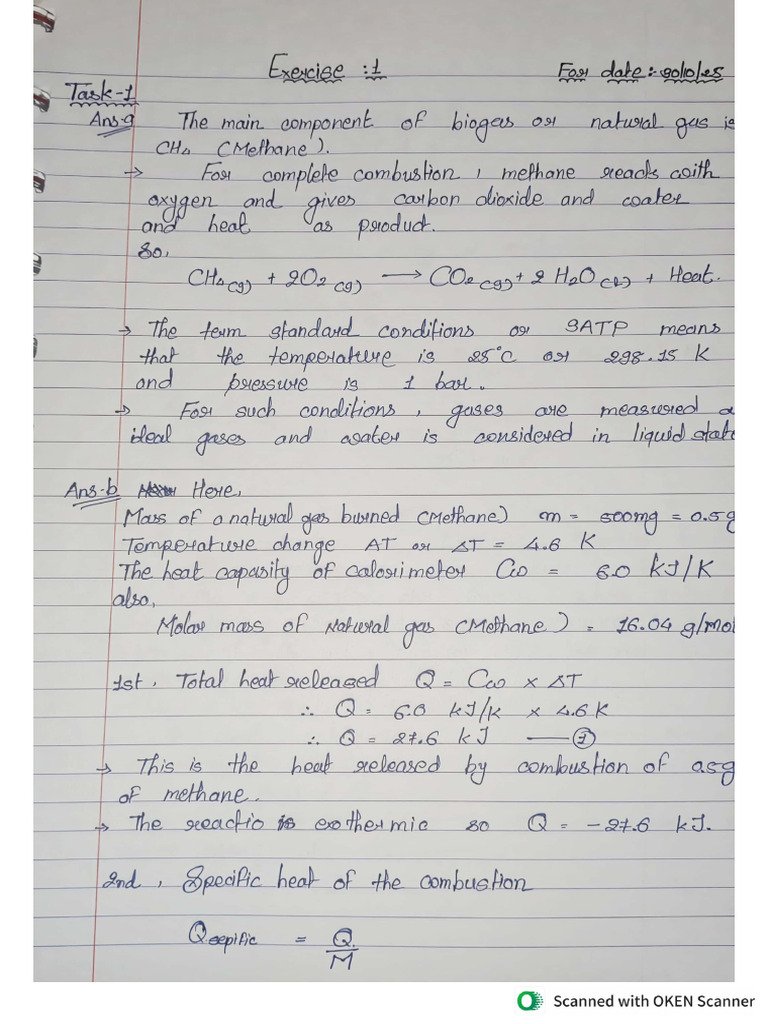 Exercise :1
For date: 30/10/25
Task-1
Ans-a The main component of biogas or natural gas is
CH4 (Methane).
→ For complete combustion, methane reacts with
oxygen and gives carbon dioxide and water
and heat as product.
So,
CH4(g) + 2O2(g) → CO2(g) + 2 H2O(l) + Heat.
→ The term standard conditions or SATP means
that the temperature is 25°C or 298.15 K
and pressure is 1 bar.
→ For such conditions, gases are measured a
ideal gases and water is considered in liquid state
Ans-b Here,
Mass of a natural gas burned (Methane) m = 500mg = 0.5g
Temperature change AT or ΔT = 4.6 K
The heat capasity of calorimeter Cw = 6.0 kJ/K
also,
Molar mass of Natural gas (Methane) = 16.04 g/mol
1st, Total heat released Q = Cw × ΔT
∴ Q = 6.0 kJ/k × 4.6 K
∴ Q = 27.6 kJ —— ①
→ This is the heat released by combustion of 0.5g
of methane.
→ The reactio is exothermic so Q = -27.6 kJ.
2nd, Specific heat of the combustion
Qsepific = Q/M
Scanned with OKEN Scanner